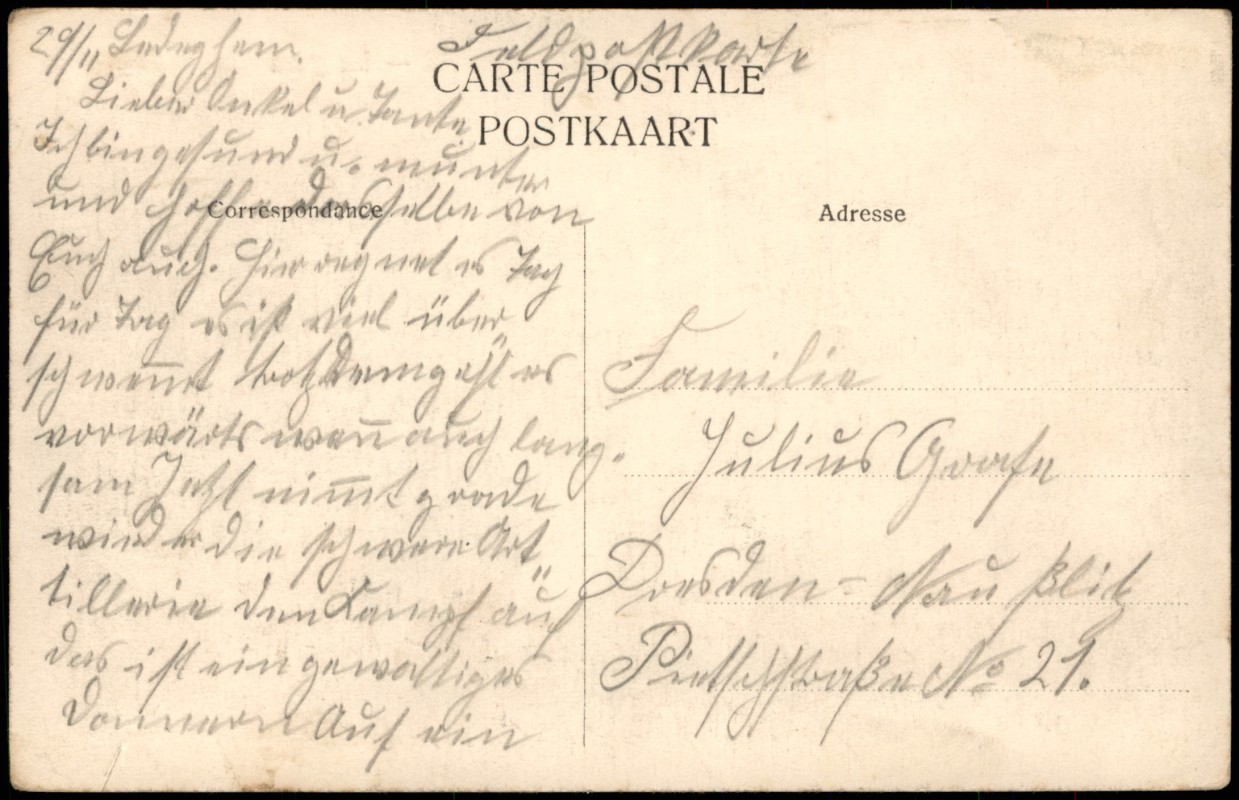 29/11 Ledeghem.
Feldpostkarte
CARTE POSTALE
POSTKAART
Correspondance
Adresse
Lieber Onkel u. Tante.
Ich bin gesund u. munter
und hoffe dasselbe von
Euch auch. Hier regnet es Tag
für Tag es ist viel über
schwem̅t trotzdem geht es
vorwärts wen̅ auch lang-
sam Jetzt nim̅t grade
wieder die schwere Art„
tillerie den Kampf auf
das ist ein gewaltiges
Donnern Auf ein
Familie
Julius Grafe
Dresden-Naußlitz
Pietschstraße No 21.